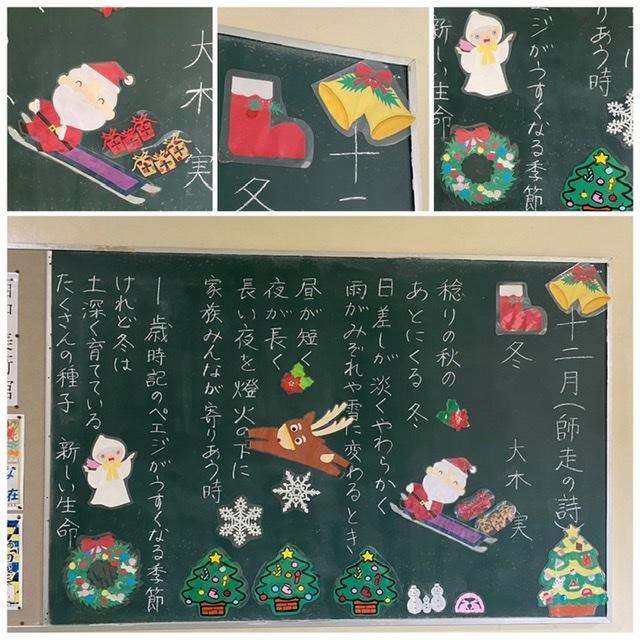 大木 実
十二
冬
りあう時
エジがうすくなる季節
新しい生命
十二月(師走の詩)
冬
大木 実
稔りの秋の
あとにくる 冬
日差しが 淡くやわらかく
雨がみぞれや雪に変わるとき
昼が短く
夜が長く
長い夜を 燈火の下に
家族みんなが寄りあう時
―歳時記のペエジがうすくなる季節
けれど冬は
土深く育てている
たくさんの種子 新しい生命